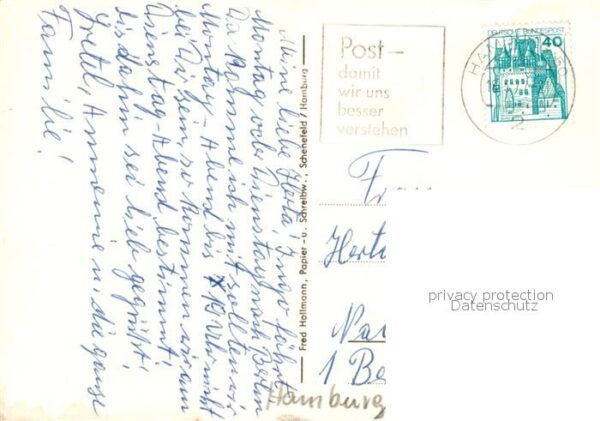 Meine liebe Herta! Ingo fährt
Montag oder Dienstag nach Berlin
Da komme ich mit sollten wir
Montag-Abend bis nicht
bei Dir sein, so kommen wir am
Dienstag-Abend bestimmt
bis dahin sei lieb gegrüßt!
Gretel, Annemie u. die ganze
Familie!
Fred Hollmann, Papier- u. Schreibw., Schenefeld / Hamburg
Post –
damit
wir uns
besser
verstehen
HAMBURG
2
DEUTSCHE BUNDESPOST
40
Herta
1 Be
Hamburg
privacy protection
Datenschutz